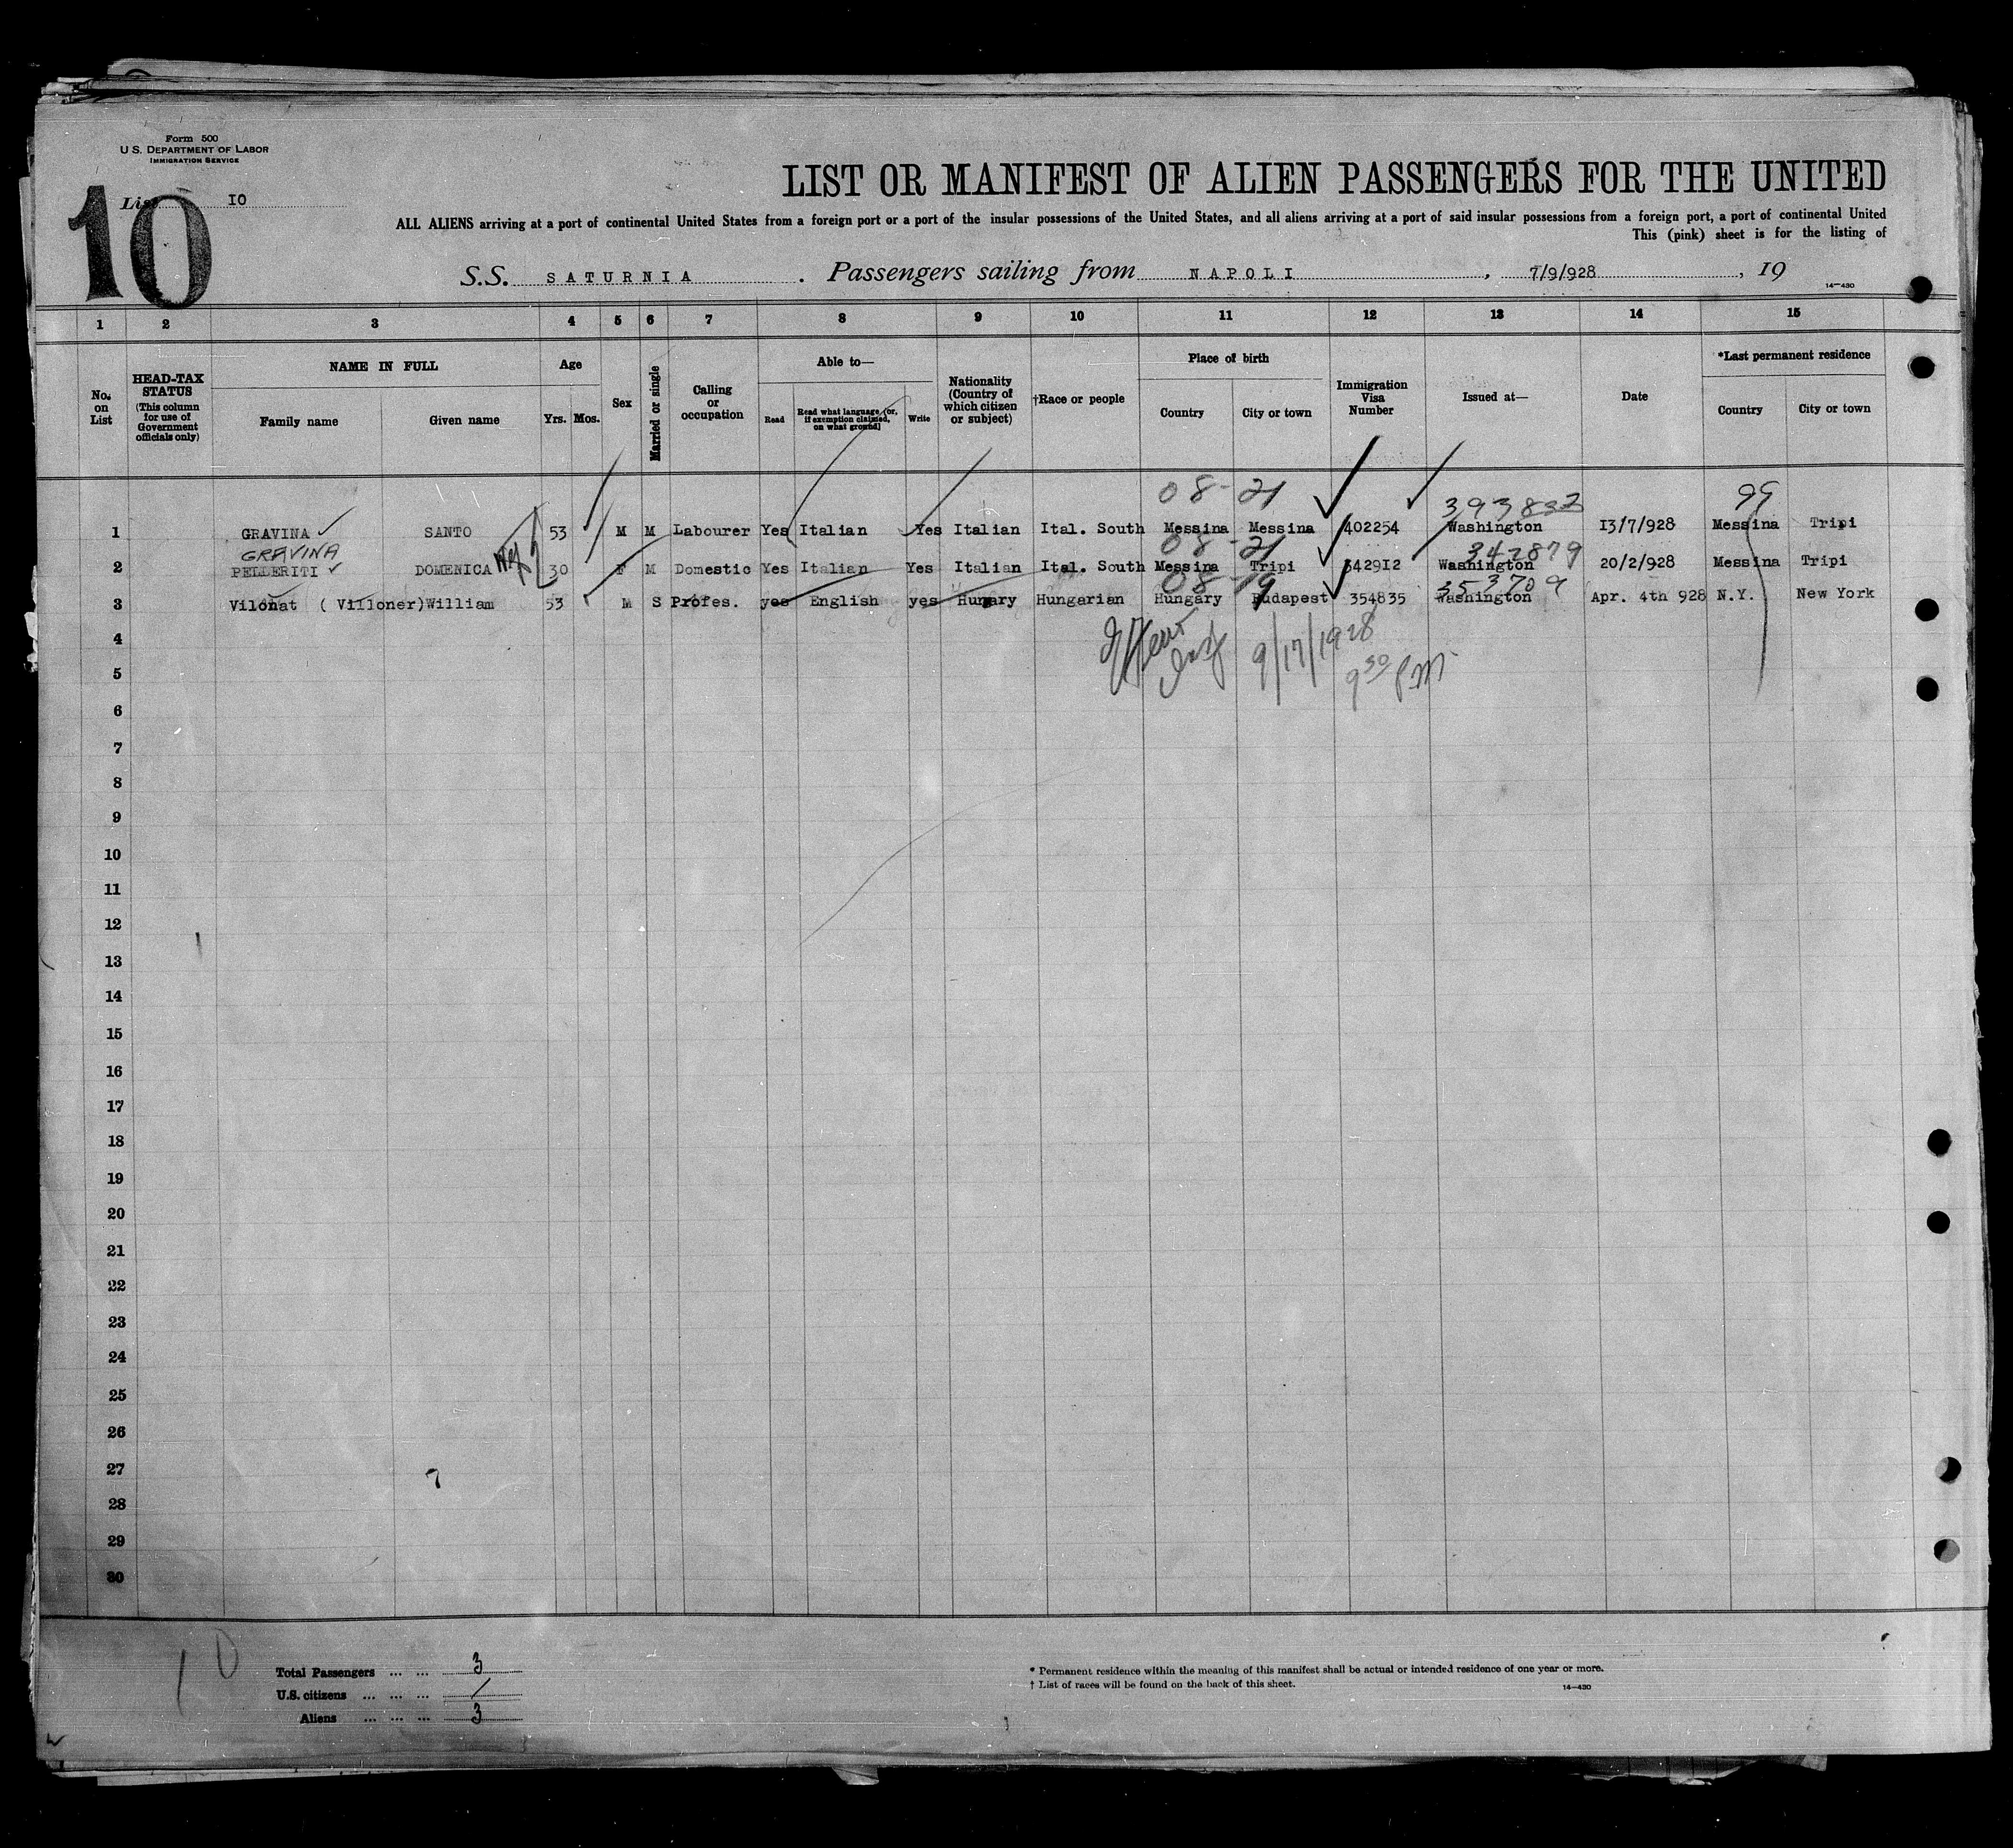 Form 500
U.S. DEPARTMENT OF LABOR
IMMIGRATION SERVICE
List 10
10
LIST OR MANIFEST OF ALIEN PASSENGERS FOR THE UNITED
ALL ALIENS arriving at a port of continental United States from a foreign port or a port of the insular possessions of the United States, and all aliens arriving at a port of said insular possessions from a foreign port, a port of continental United
This (pink) sheet is for the listing of
S.S. SATURNIA . Passengers sailing from NAPOLI , 7/9/928 , 19
14—430
1 2 3 4 5 6 7 8 9 10 11 12 13 14 15
No. on List
HEAD-TAX STATUS (This column for use of Government officials only)
NAME IN FULL
Family name Given name
Age
Yrs. Mos.
Sex
Married or single
Calling or occupation
Able to—
Read Read what language [or, if exemption claimed, on what ground] Write
Nationality (Country of which citizen or subject)
†Race or people
Place of birth
Country City or town
Immigration Visa Number
Issued at—
Date
*Last permanent residence
Country City or town
08-21 99
1 GRAVINA SANTO 53 M M Labourer Yes Italian Yes Italian Ital. South Messina Messina 402254 Washington 13/7/928 Messina Tripi
GRAVINA 08-21 342879
2 PELLERITI DOMENICA 30 F M Domestic Yes Italian Yes Italian Ital. South Messina Tripi 342912 Washington 20/2/928 Messina Tripi
08-19 353709
3 Vilonat (Villoner) William 53 M S Profes. yes English yes Hungary Hungarian Hungary Budapest 354835 Washington Apr. 4th 928 N.Y. New York
4
9/17/1928
5
9 30 PM
6
7
8
9
10
11
12
13
14
15
16
17
18
19
20
21
22
23
24
25
26
27
28
29
30
10
Total Passengers ... ... 3
U.S. citizens ... ... ... /
Aliens ... ... ... 3
* Permanent residence within the meaning of this manifest shall be actual or intended residence of one year or more.
† List of races will be found on the back of this sheet.
14—430